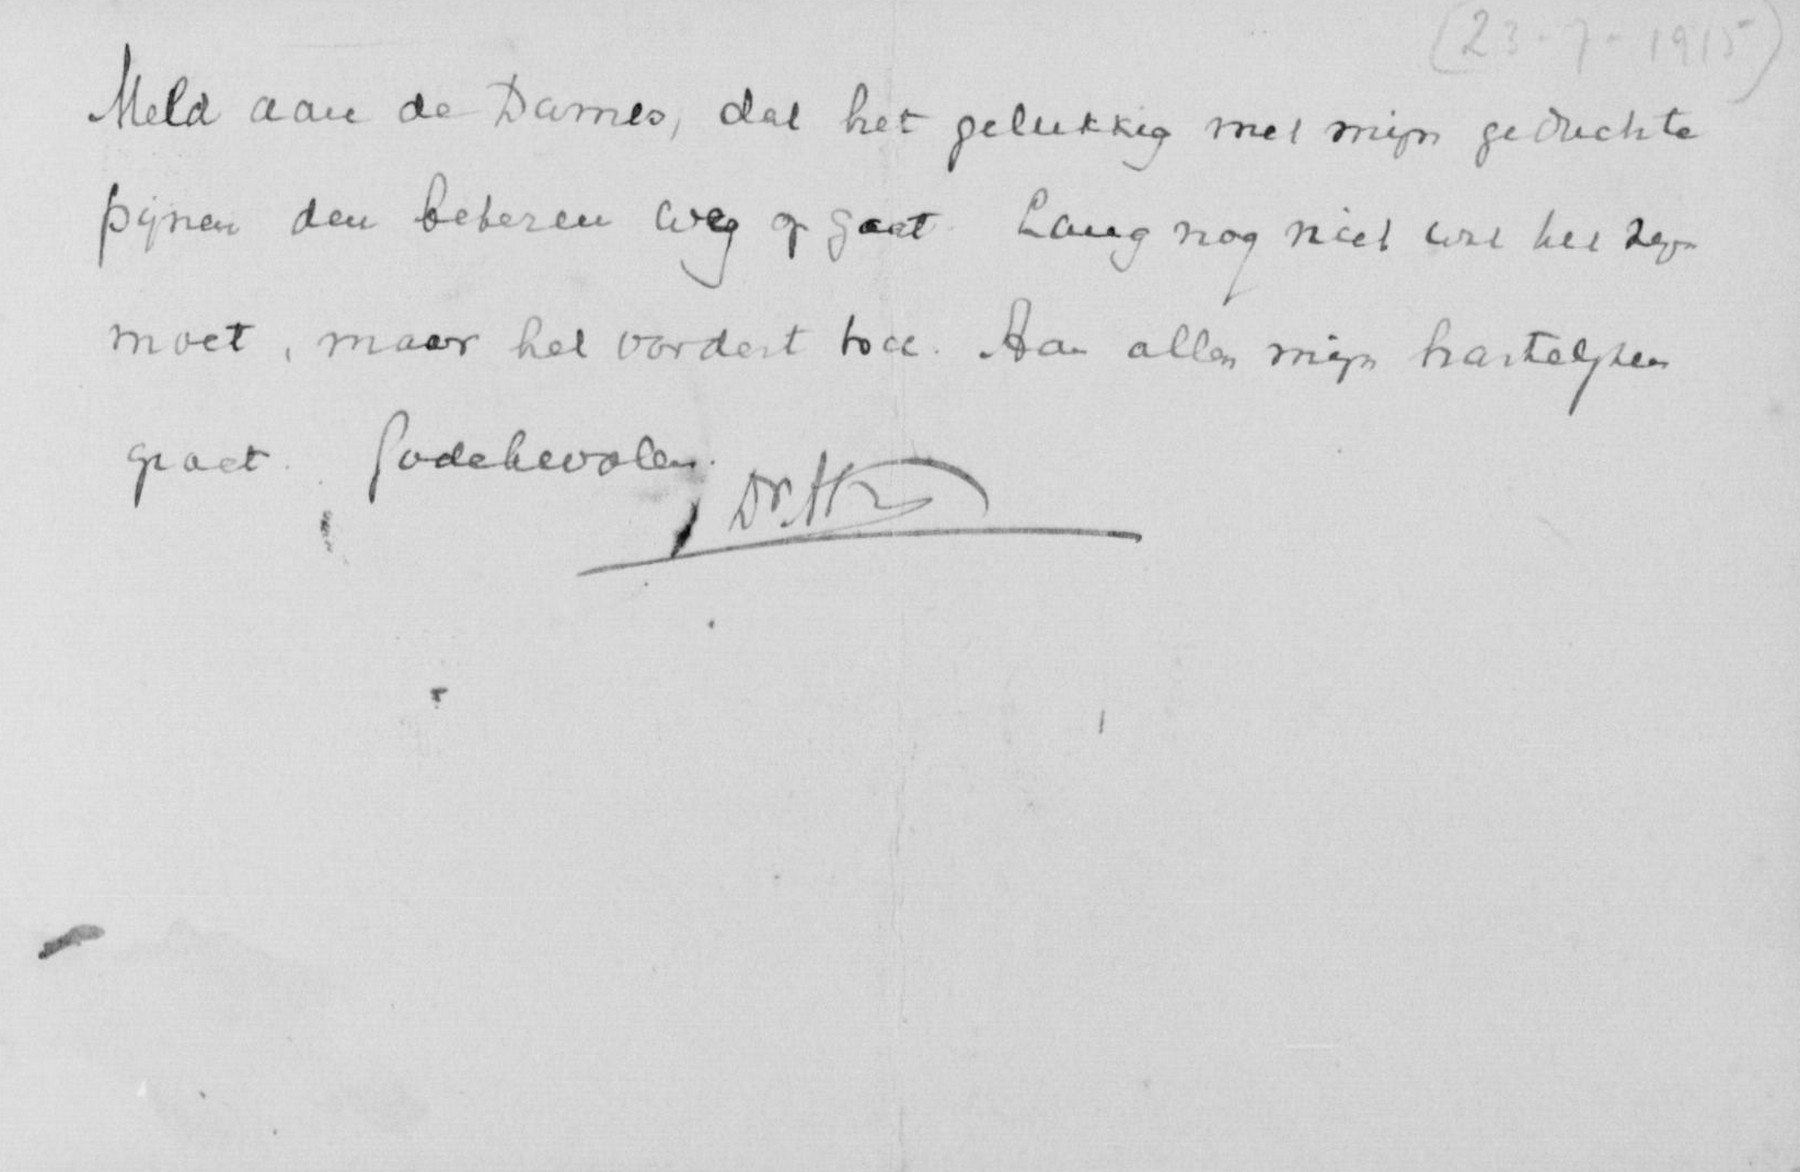 (23-7-1915)
Meld aan de Dames, dat het gelukkig met mijn geduchte
pijnen den beteren weg op gaat. Lang nog niet wat het zijn
moet, maar het vordert toch. Aan allen mijn hartelijken
groet. Godebevolen.
Dr.